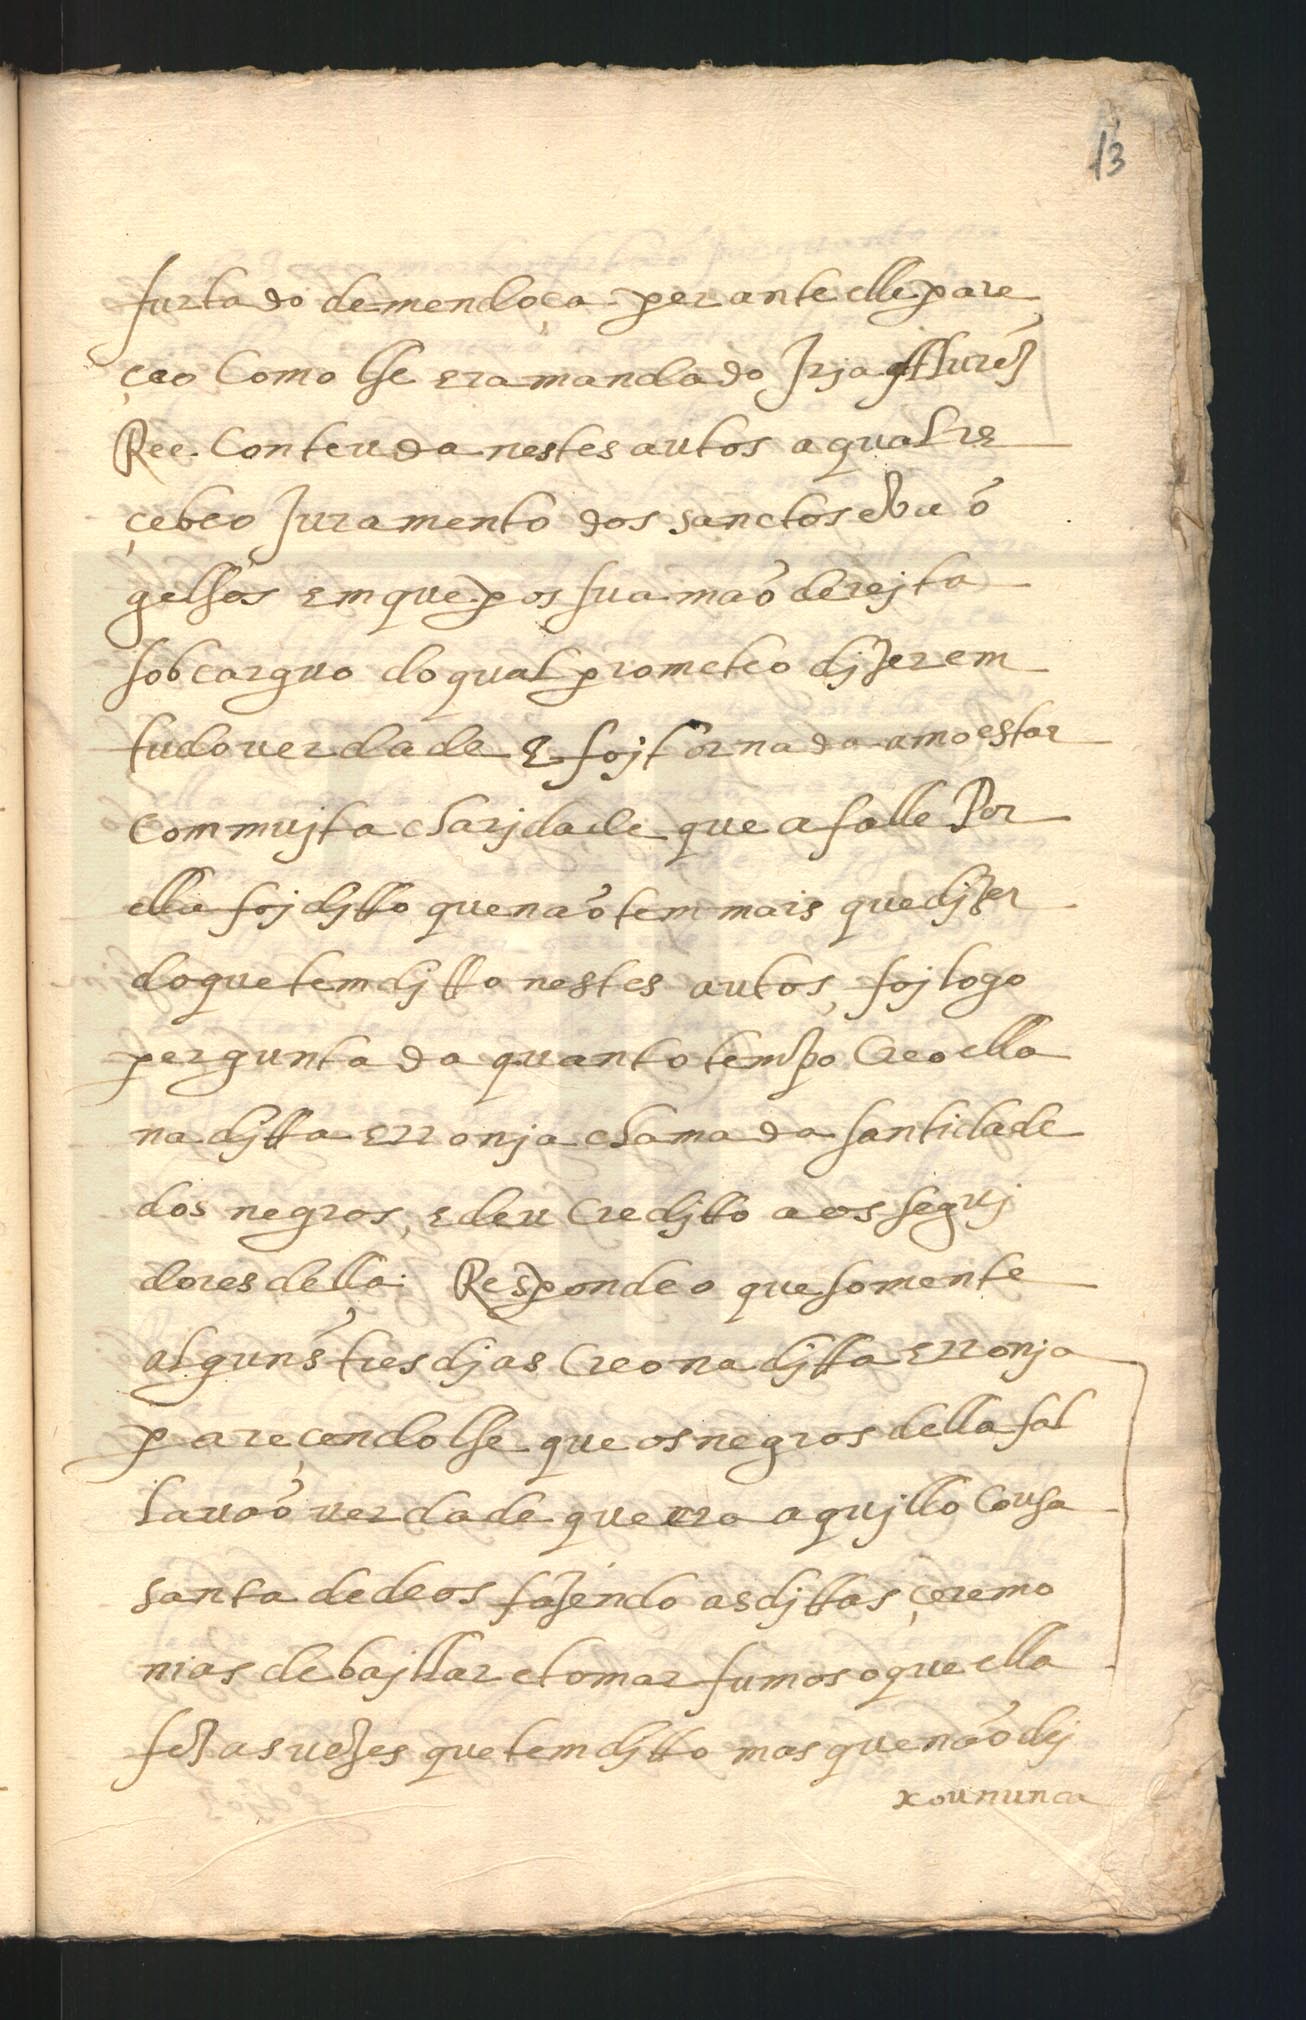 13
furtado de mendoça perante elle pare
çeo Como lhe era mandado Irja Alurez
Ree. Conteuda nestes autos a qual re
çebeo Juramento dos sanctos evuã
gelhos em que pos sua mão derejta
sob carguo do qual prometeo djzer em
tudo verdade e foj tornada amoestar
com mujta charjdade que a falle Por
ella foj djtto que não tem mais que djzer
do que tem djtto nestes autos, foj logo
perguntada quanto tempo Creo ella
na djtta erronja chamada santidade
dos negros, e deu Credjtto aos seguj
dores della: Respondeo que somente
alguns tres djas Creo na djtta erronja
pareçendo lhe que os negros della fal
lauão verdade que era aqujllo Cousa
santa de deos fazendo as djttas çeremo
nias de bajllar e tomar fumos o que ella
fez as uezes que tem djtto mas que não dej
xou nunca